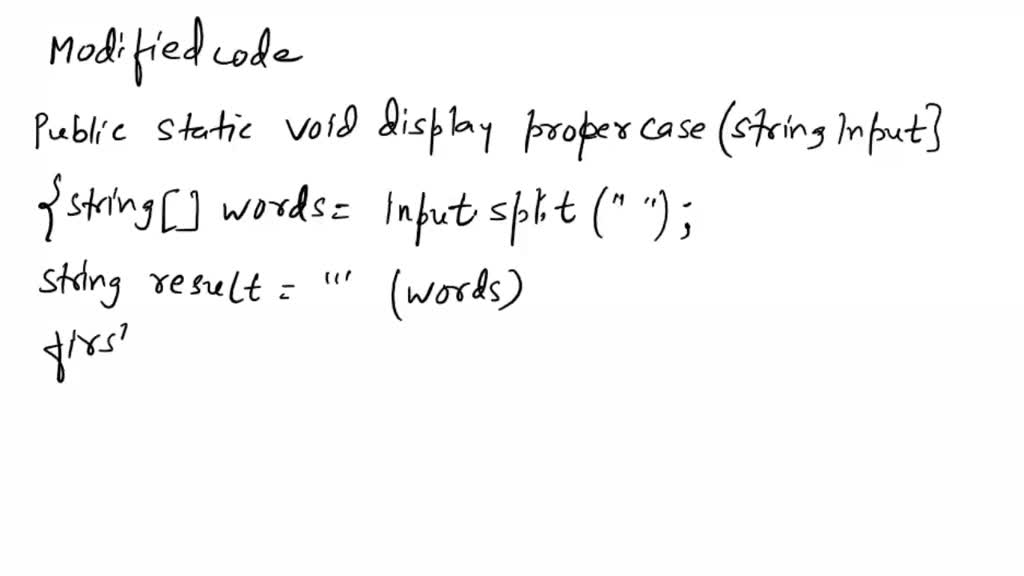 Modified code
Public static void display propercase (string Input}
{string[] words= Input split (" ");
string result = "" (words)
firs